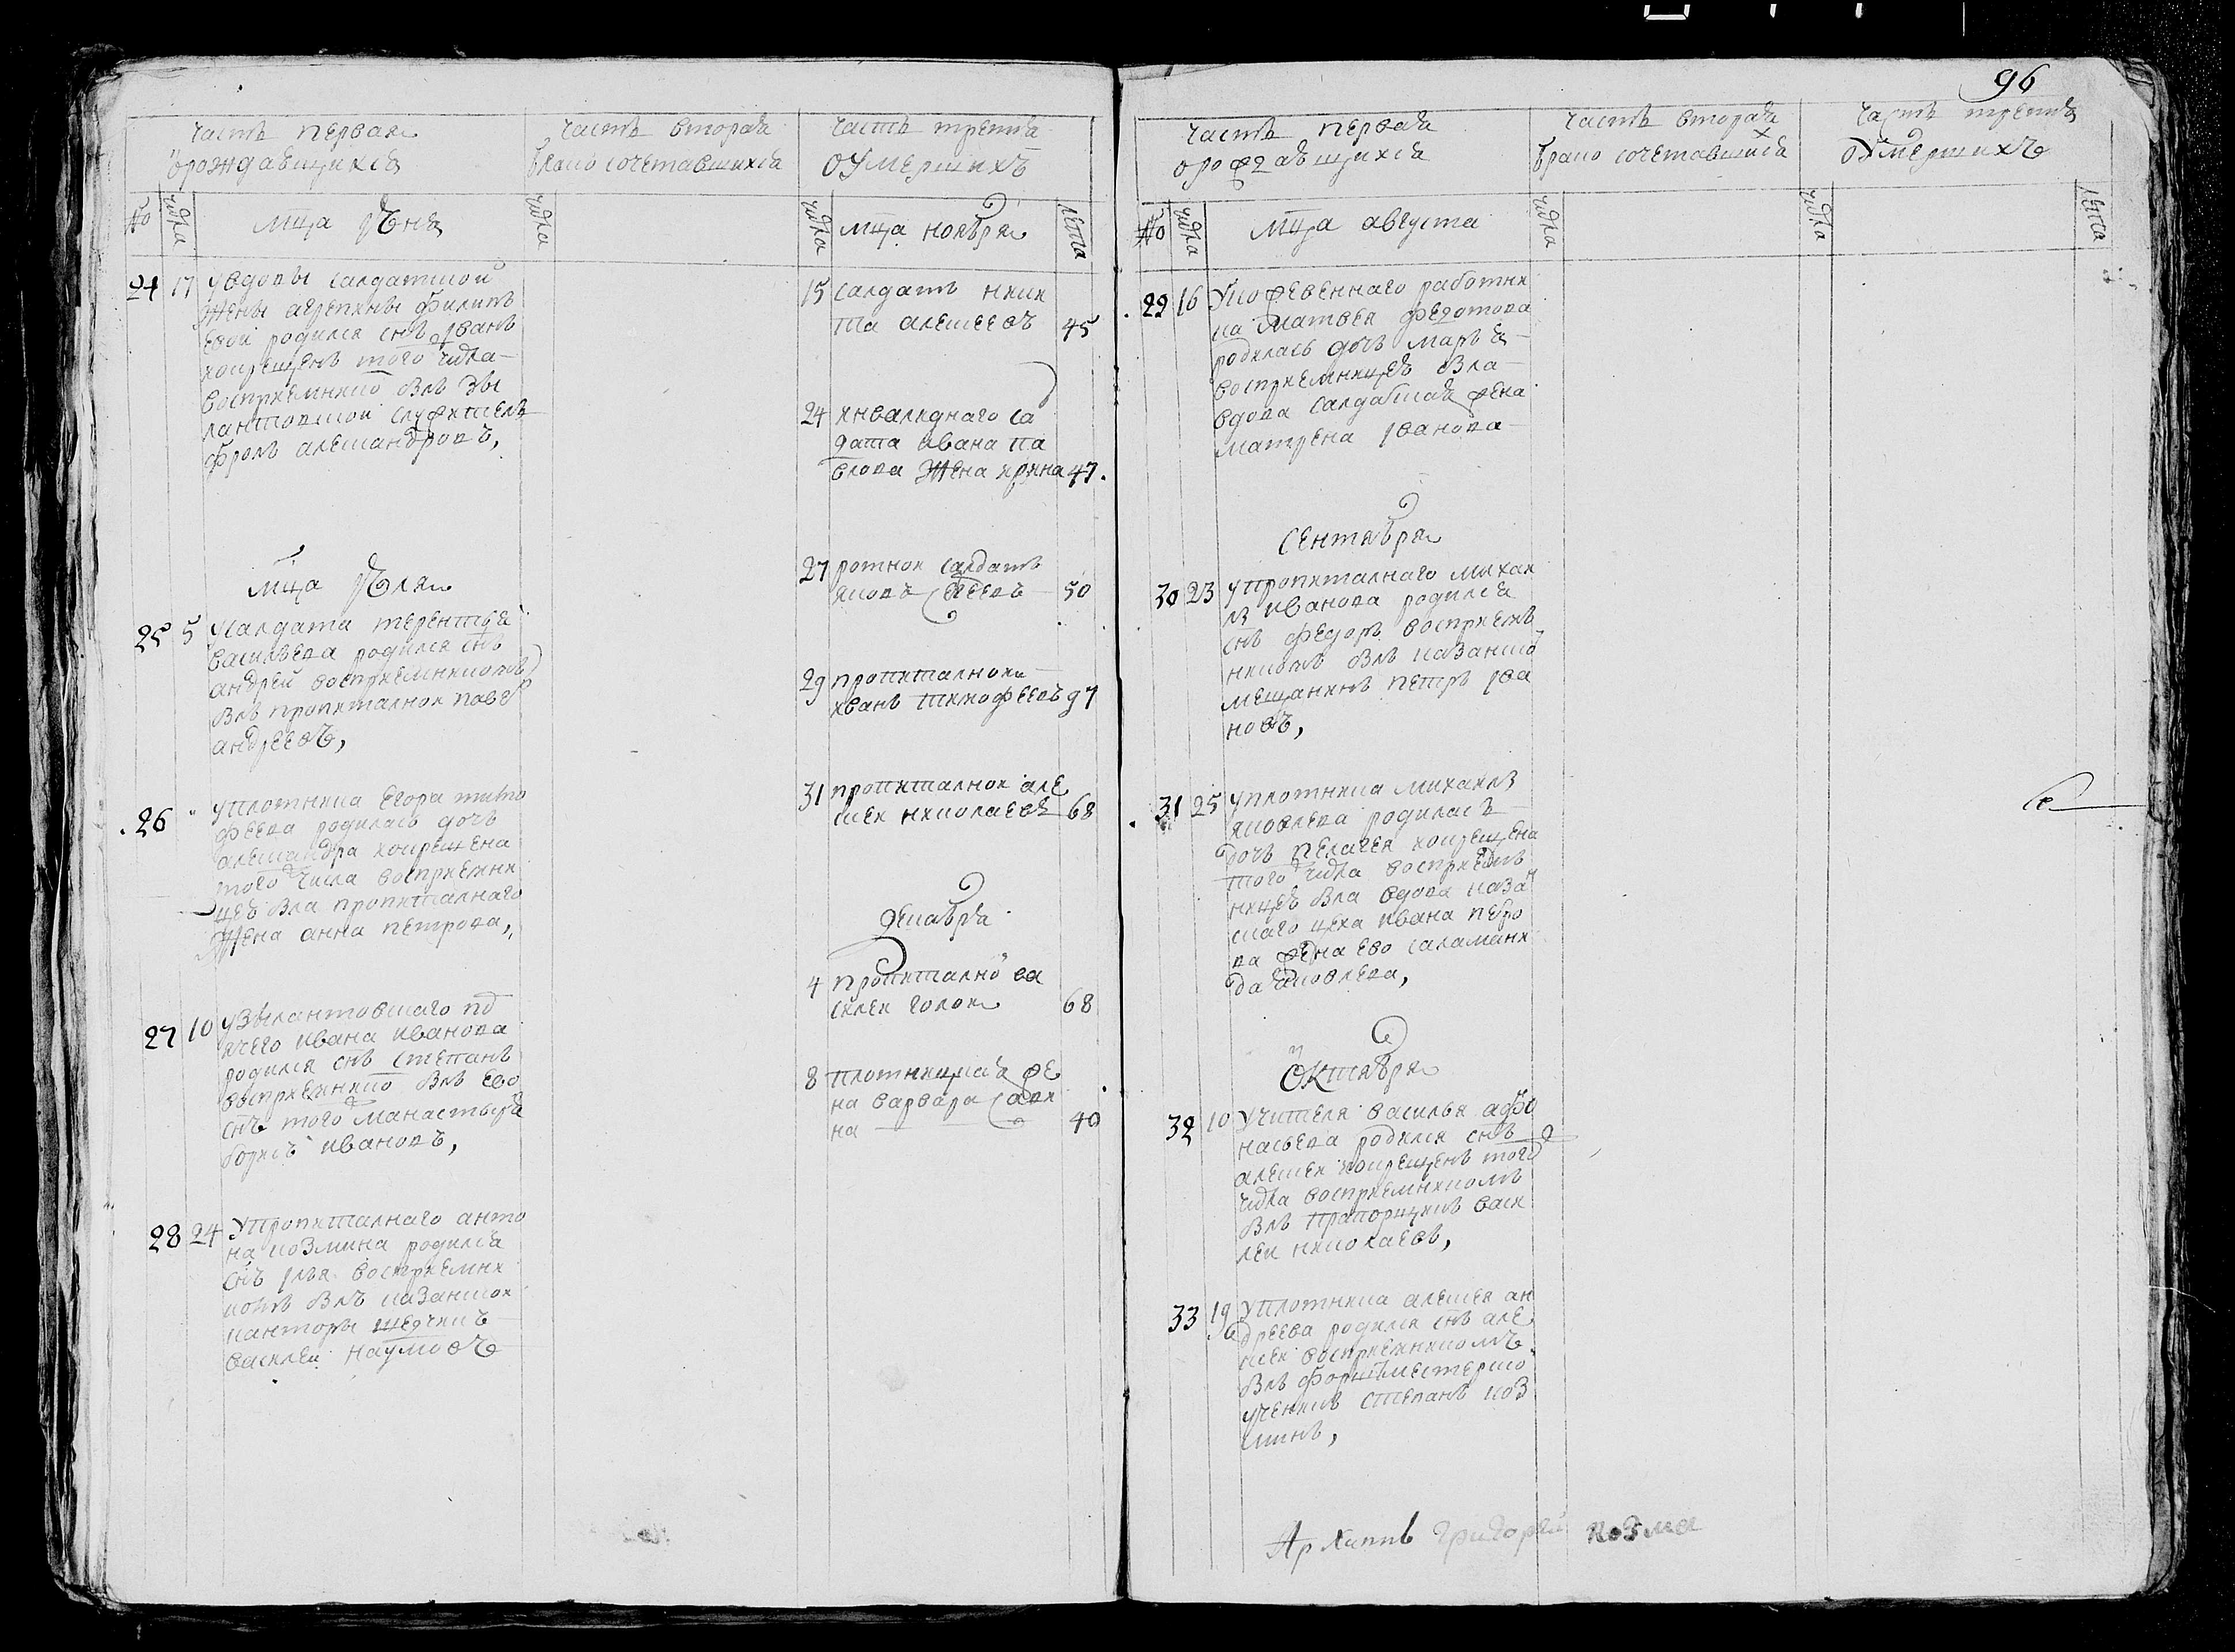 96
часть первая
орождающихся
часть вторая
брако сочетавшихся
часть третия
оумерших
№
числа
мца июня
числа
числа
мца ноября
лета
24 17 у вдовы салдатской
жены агрепены филипь
евой родился снъ иванъ
и крещенъ того числа
восприемнико былъ
служитель
фролъ александровъ,
мца июля
25 5 у салдата терентья
васильева родился снъ
андрей восприемникомъ
былъ пропиталнои паве
андреевъ,
26 " у плотника егора тимо
феева родилась дочь
александра и крещена
того числа восприемни
цею была пропиталнаго
жена анна петрова,
27 10 у по
ячего ивана иванова
родился снъ степанъ
восприемнико былъ ево
снъ того манастыря
иванов,
28 24 у пропиталнаго анто
на козмина родился
снъ илья восприемни
комъ былъ казанскои
канторы щетчикъ
василеи наумовъ
15 салдатъ ники
та алексеевъ 45
24 инвалиднаго са
дата ивана па
влова жена ирина 47.
27 ротнои салдатъ
яковъ 50
29 пропиталнои
иванъ тимофеевъ 97
31 пропиталнои але
ксеи николаевъ 68
декабря
4 пропитално ва
силеи голои 68
8 плотницкая же
на варвара савы
на 40
часть первая
орождающихся
часть вторая
брако сочетавшихся
часть третия
оумерших
№
числа
мца августа
числа
числа
лета
29 16 У кожевеннаго работни
ка матвея федотова
родилась дочь марья
восприемницею была
вдова салдатская жена
матрена иванова
сентября
30 23 у пропиталнаго михаи
ла иванова родился
снъ федоръ восприем
никомъ былъ казанско
мещанинъ петръ ива
новъ,
31 25 у плотника михаила
яковлева родилась
дочь пелагея и крещена
того числа восприем
ницею была вдова каза
скаго цеха ивана петро
ва жена ево саламани
да яковлева,
октября
32 10 у учителя василья афо
насьева родился снъ
алексеи и крещенъ того
числа восприемникомъ
былъ прапорщикъ васи
леи николаевъ,
33 19 у плотника алексея ан
дреева родился снъ але
ксеи восприемникомъ
былъ форштместерско
ученикъ степанъ коз
минъ,
Архиппъ григорей козма